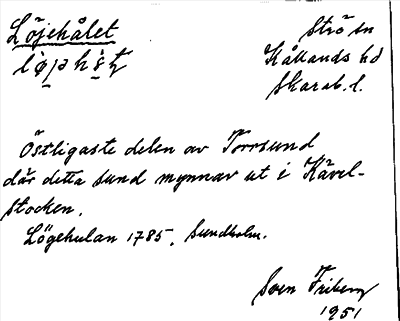 Löjehålet
Strö sn
Kållands hd
Skarab. l.
Östligaste delen av Torrsund
där detta sund mynnar ut i Kävel-
stocken.
Lögehulan 1785, Sundholm.
Sven Friberg
1951